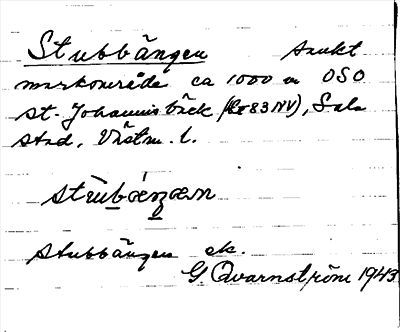 Stubbängen sankt
markområde ca 1000 m OSO
St. Johannisbäck (83NV), Sala
stad, Västm. l.
Stubbängen ek.
G. Qvarnström 1943